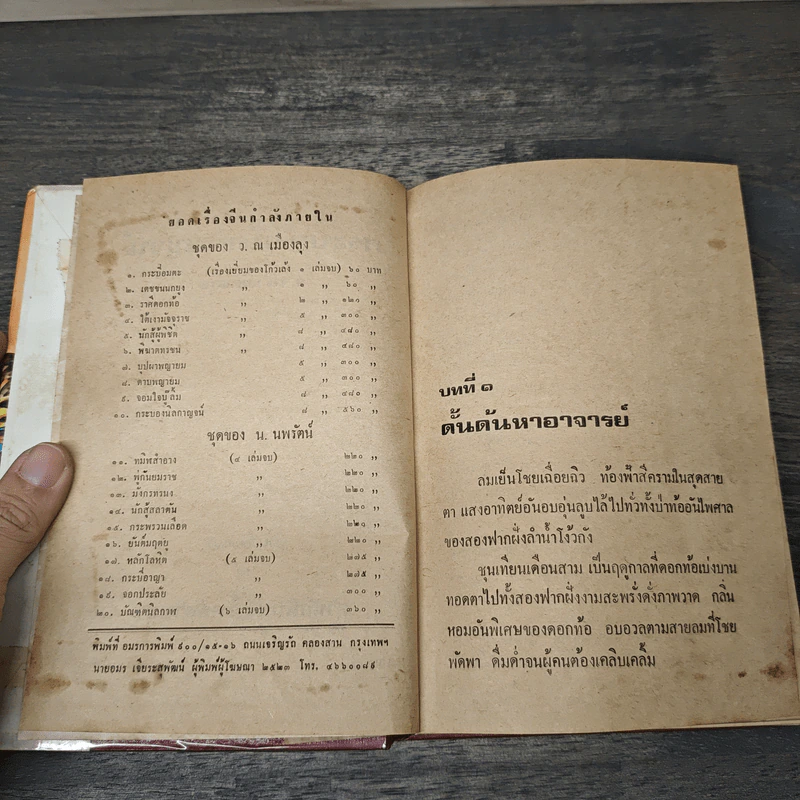 ยอดเรื่องจีนกำลังภายใน
ชุดของ ว. ณ เมืองลุง
๑. กระบี่อมตะ (เรื่องเยี่ยมของโก้วเล้ง ๑ เล่มจบ) ๖๐ บาท
๒. เดชขนนกยูง ,, ๑ ,, ๖๐ ,,
๓. ราศีดอกท้อ ,, ๒ ,, ๑๒๐ ,,
๔. ใต้เงามัจจุราช ,, ๕ ,, ๓๐๐ ,,
๕. นักสู้ผู้พิชิต ,, ๘ ,, ๔๘๐ ,,
๖. พิฆาตทรชน ,, ๘ ,, ๔๘๐ ,,
๗. บุปผาพญายม ๕ ,, ๓๐๐ ,,
๘. ดาบพญายม ๕ ,, ๓๐๐ ,,
๙. จอมใจบู๊ลิ้ม ๘ ,, ๔๘๐ ,,
๑๐. กระบองนิลกาญจน์ ๘ ,, ๕๖๐ ,,
ชุดของ น. นพรัตน์
๑๑. ทมิฬสำอาง (๔ เล่มจบ) ๒๒๐ ,,
๑๒. พู่กันยมราช ,, ๒๒๐ ,,
๑๓. มังกรทรนง ,, ๒๒๐ ,,
๑๔. นักสู้สลาตัน ,, ๒๒๐ ,,
๑๕. กระพรวนเลือด ,, ๒๒๐ ,,
๑๖. ยันต์มฤตยู ,, ๒๒๐ ,,
๑๗. หลักโลหิต (๕ เล่มจบ) ๒๗๕ ,,
๑๘. กระบี่อาญา ,, ๒๗๕ ,,
๑๙. จอกประลัย ,, ๓๐๐ ,,
๒๐. บัณฑิตนิลกาฬ (๖ เล่มจบ) ๓๖๐ ,,
พิมพ์ที่ อมรการพิมพ์ ๙๐๐/๑๕-๑๖ ถนนเจริญรัถ คลองสาน กรุงเทพฯ
นายอมร เจียระสุพัฒน์ ผู้พิมพ์ผู้โฆษณา ๒๕๒๓ โทร. ๔๖๖๐๐๘๑
บทที่ ๑
ดั้นด้นหาอาจารย์
ลมเย็นโชยเฉื่อยฉิว ท้องฟ้าสีครามในสุดสาย
ตา แสงอาทิตย์อันอบอุ่นลูบไล้ไปทั่วทั้งป่าท้ออันไพศาล
ของสองฟากฝั่งลำน้ำโง้วกัง
ชุนเทียนเดือนสาม เป็นฤดูกาลที่ดอกท้อเบ่งบาน
ทอดตาไปทั้งสองฟากฝั่งงามสะพรั่งดั่งภาพวาด กลิ่น
หอมอันพิเศษของดอกท้อ อบอวลตามสายลมที่โชย
พัดพา ดื่มด่ำจนผู้คนต้องเคลิบเคลิ้ม